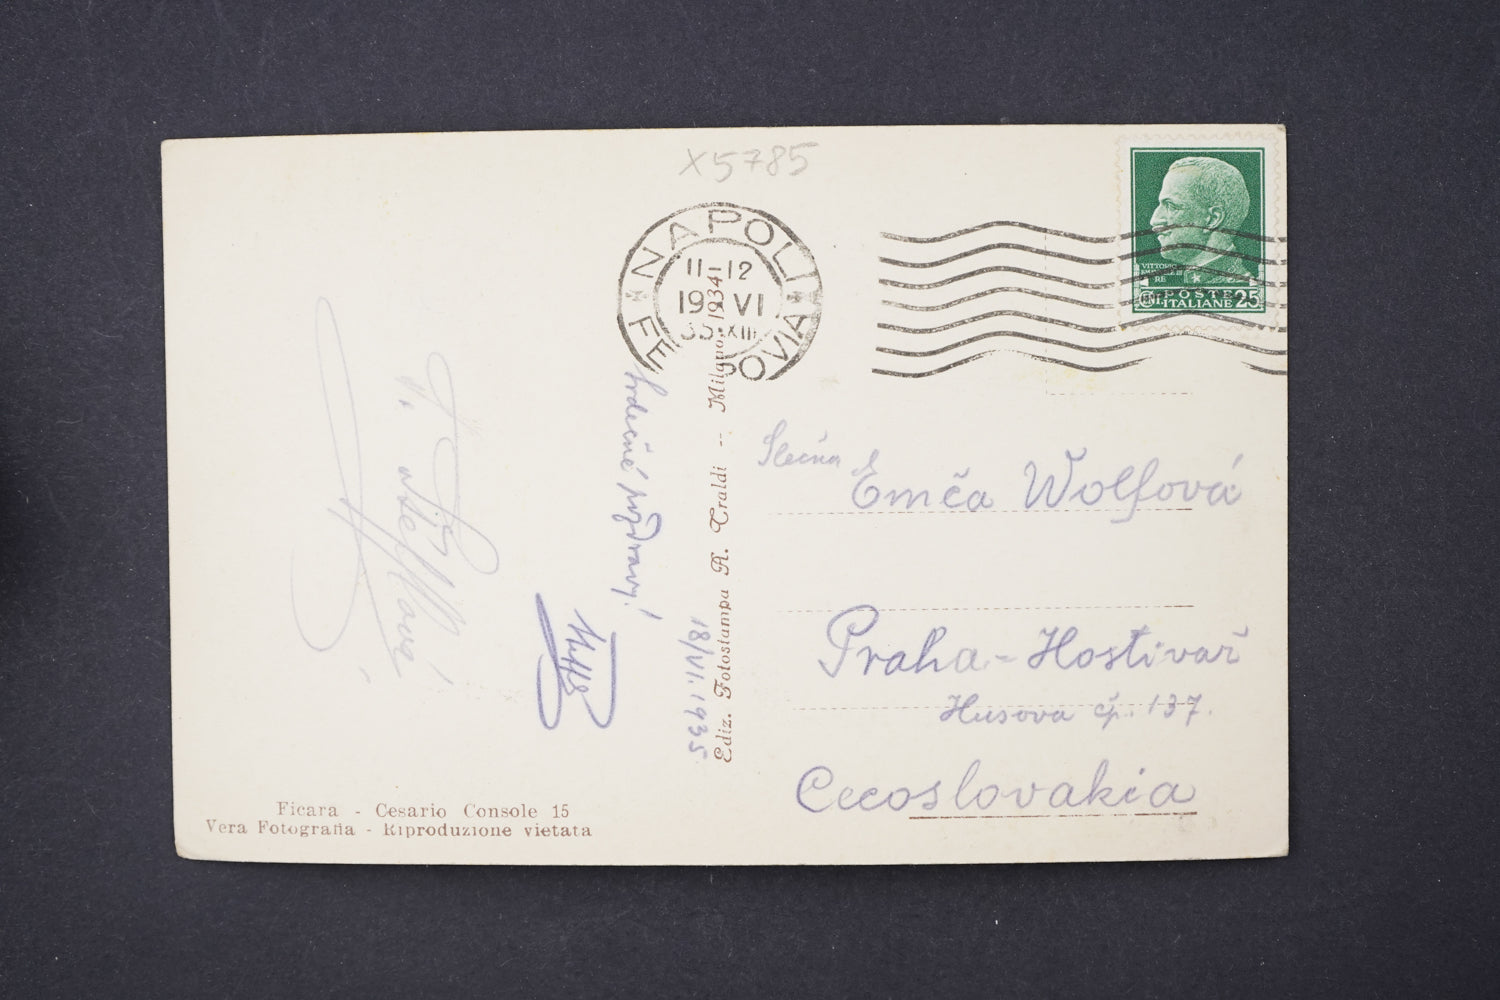 X5785
NAPOLI
11-12
19 VI
35·XIII
FERROVIA
VITTORIO
RE
POSTE
ITALIANE 25
Srdečné pozdravy!
18/VI. 1935
Ediz. Fotostampa R. Traldi -- Milano 1934
Slečna
Emča Wolfová
Praha - Hostivař
Husova čp. 137.
Cecoslovakia
Ficara - Cesario Console 15
Vera Fotografia - Riproduzione vietata